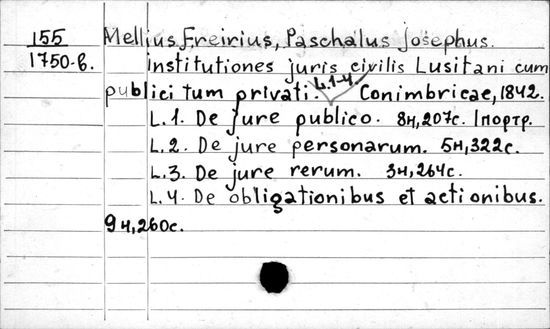 155 Mellius Freirius, Paschalus Josephus.
1750-б. Institutiones juris civilis Lusitani cum
publici tum privati. L.1-4. Conimbricae, 1842.
L.1. De jure publico. 8н,207с. 1портр.
L.2. De jure personarum. 5н,322с.
L.3. De jure rerum. 3н,264с.
L.4. De obligationibus et actionibus.
9н,260с.